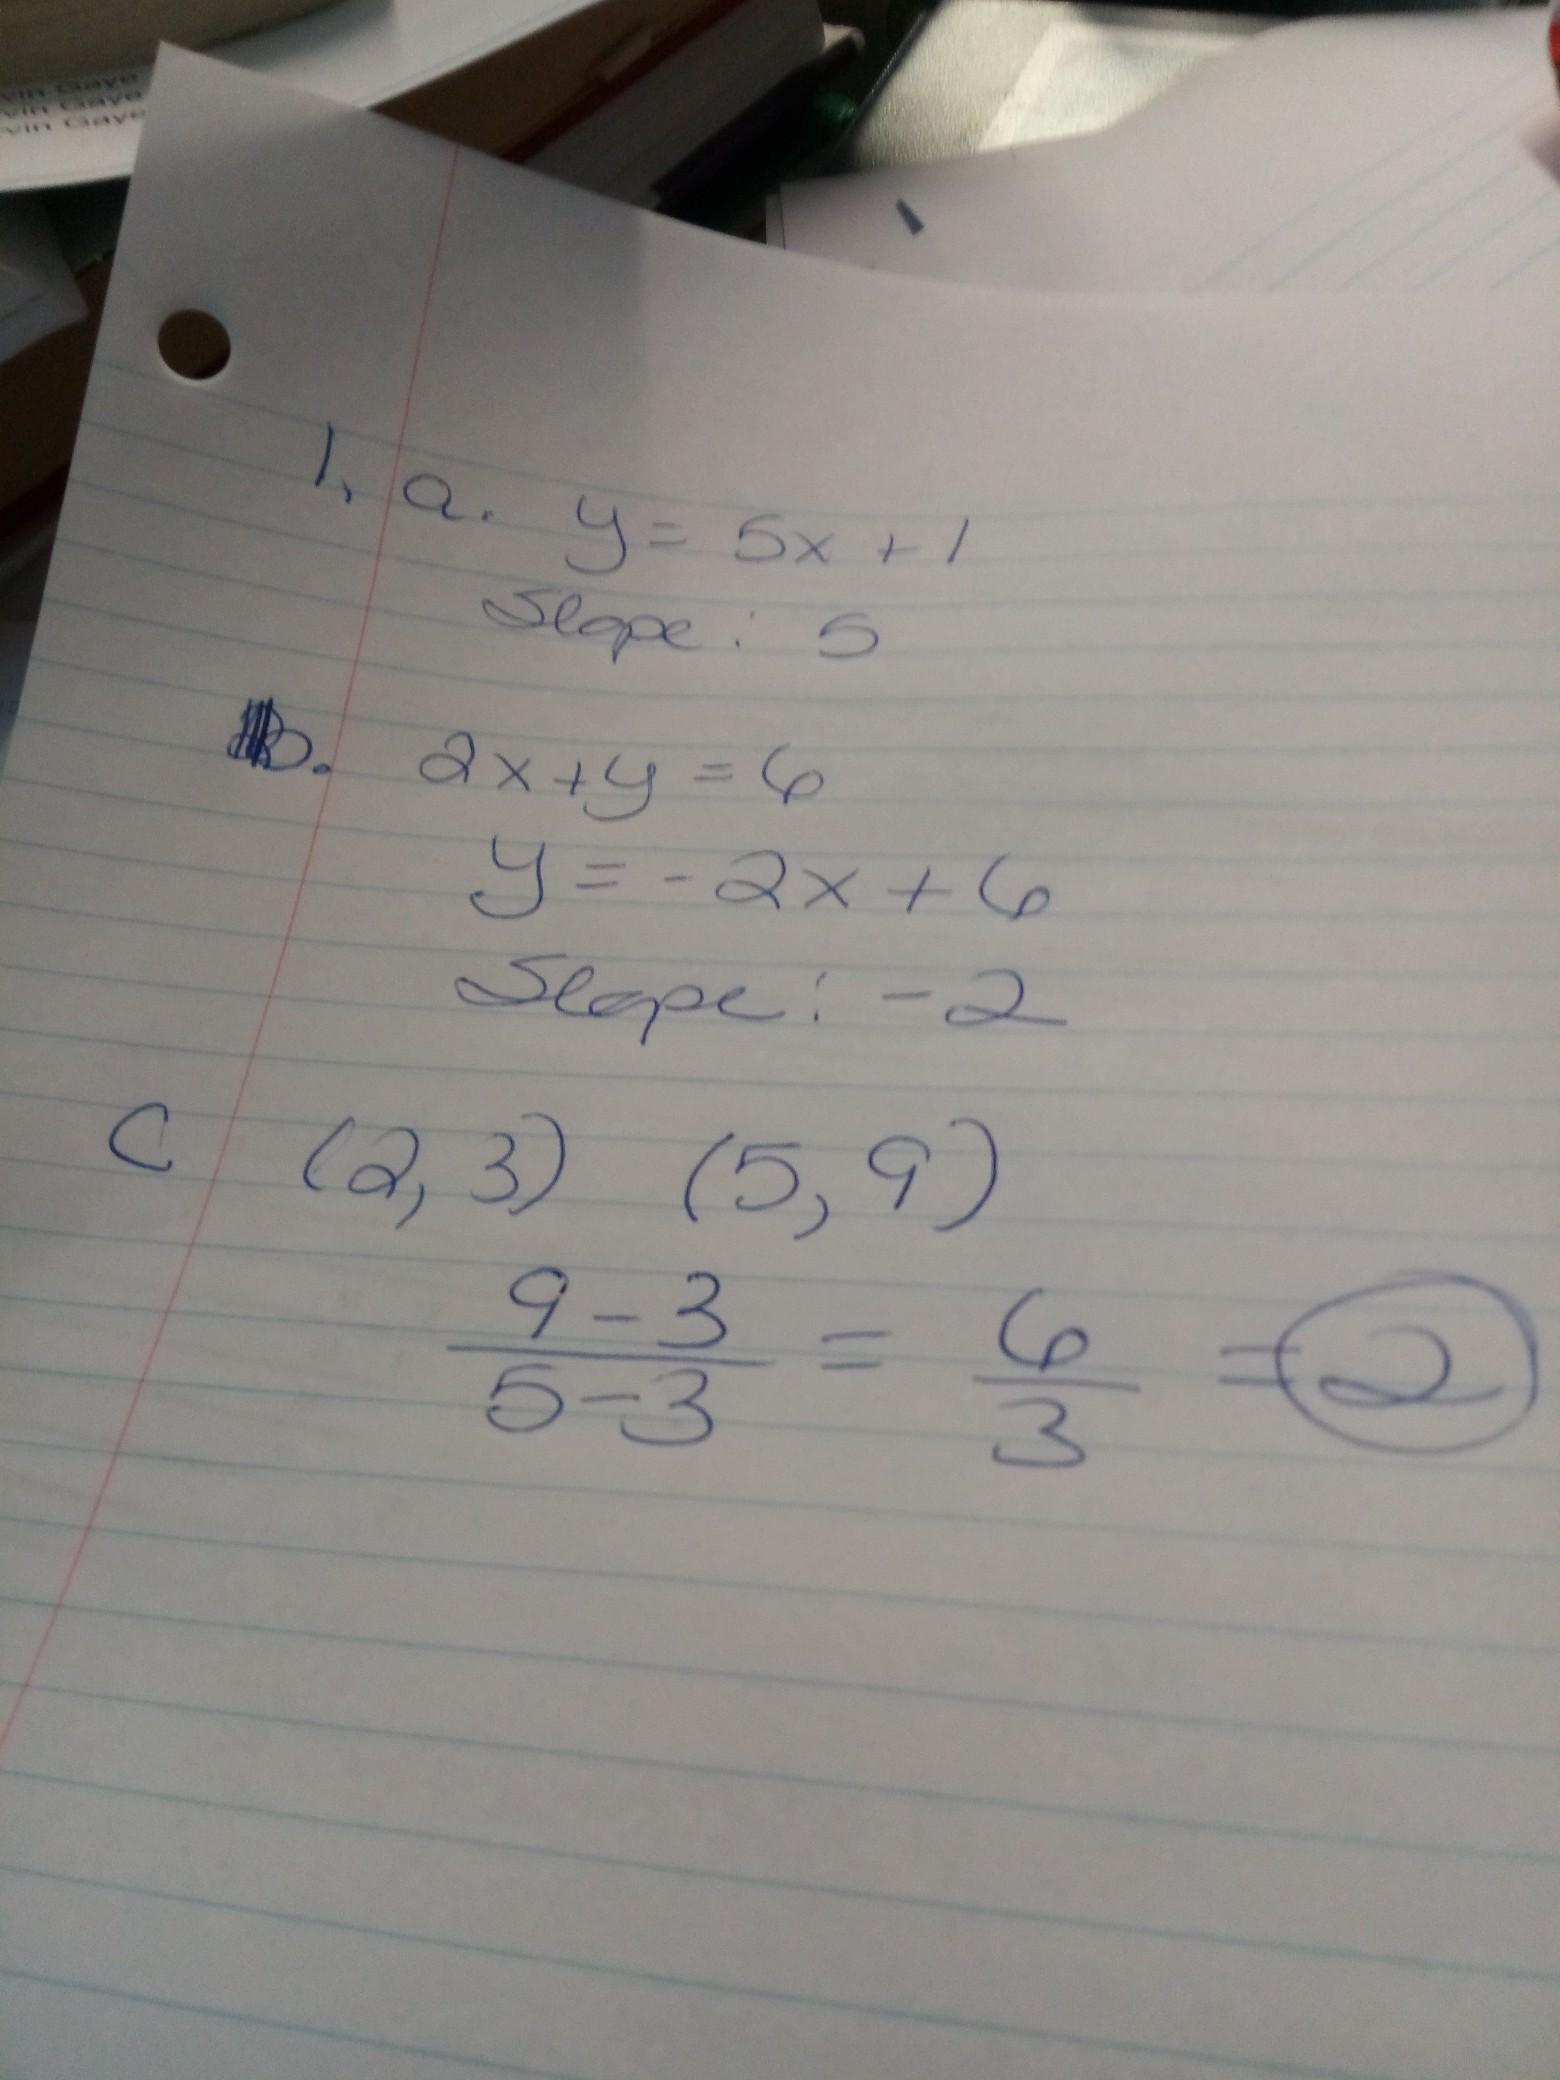 vin Gaye
vin Gaye
vin Gaye
1, a. y = 5x + 1
Slope: 5
b. 2x + y = 6
y = -2x + 6
Slope: -2
C (2, 3) (5, 9)
9 - 3
5 - 3
= 6/3 = 2